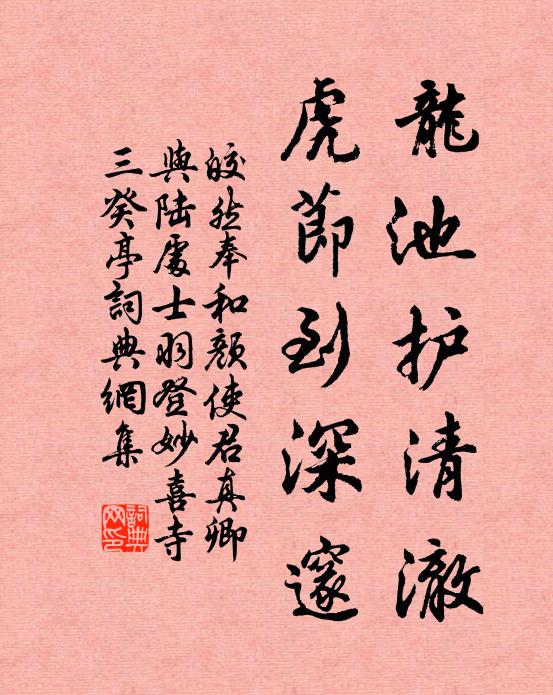 龍池护清澈
虎節到深邃
皎然奉和顏使君真卿
與陸處士羽登妙喜寺
三癸亭詞典網集
詞典
网印